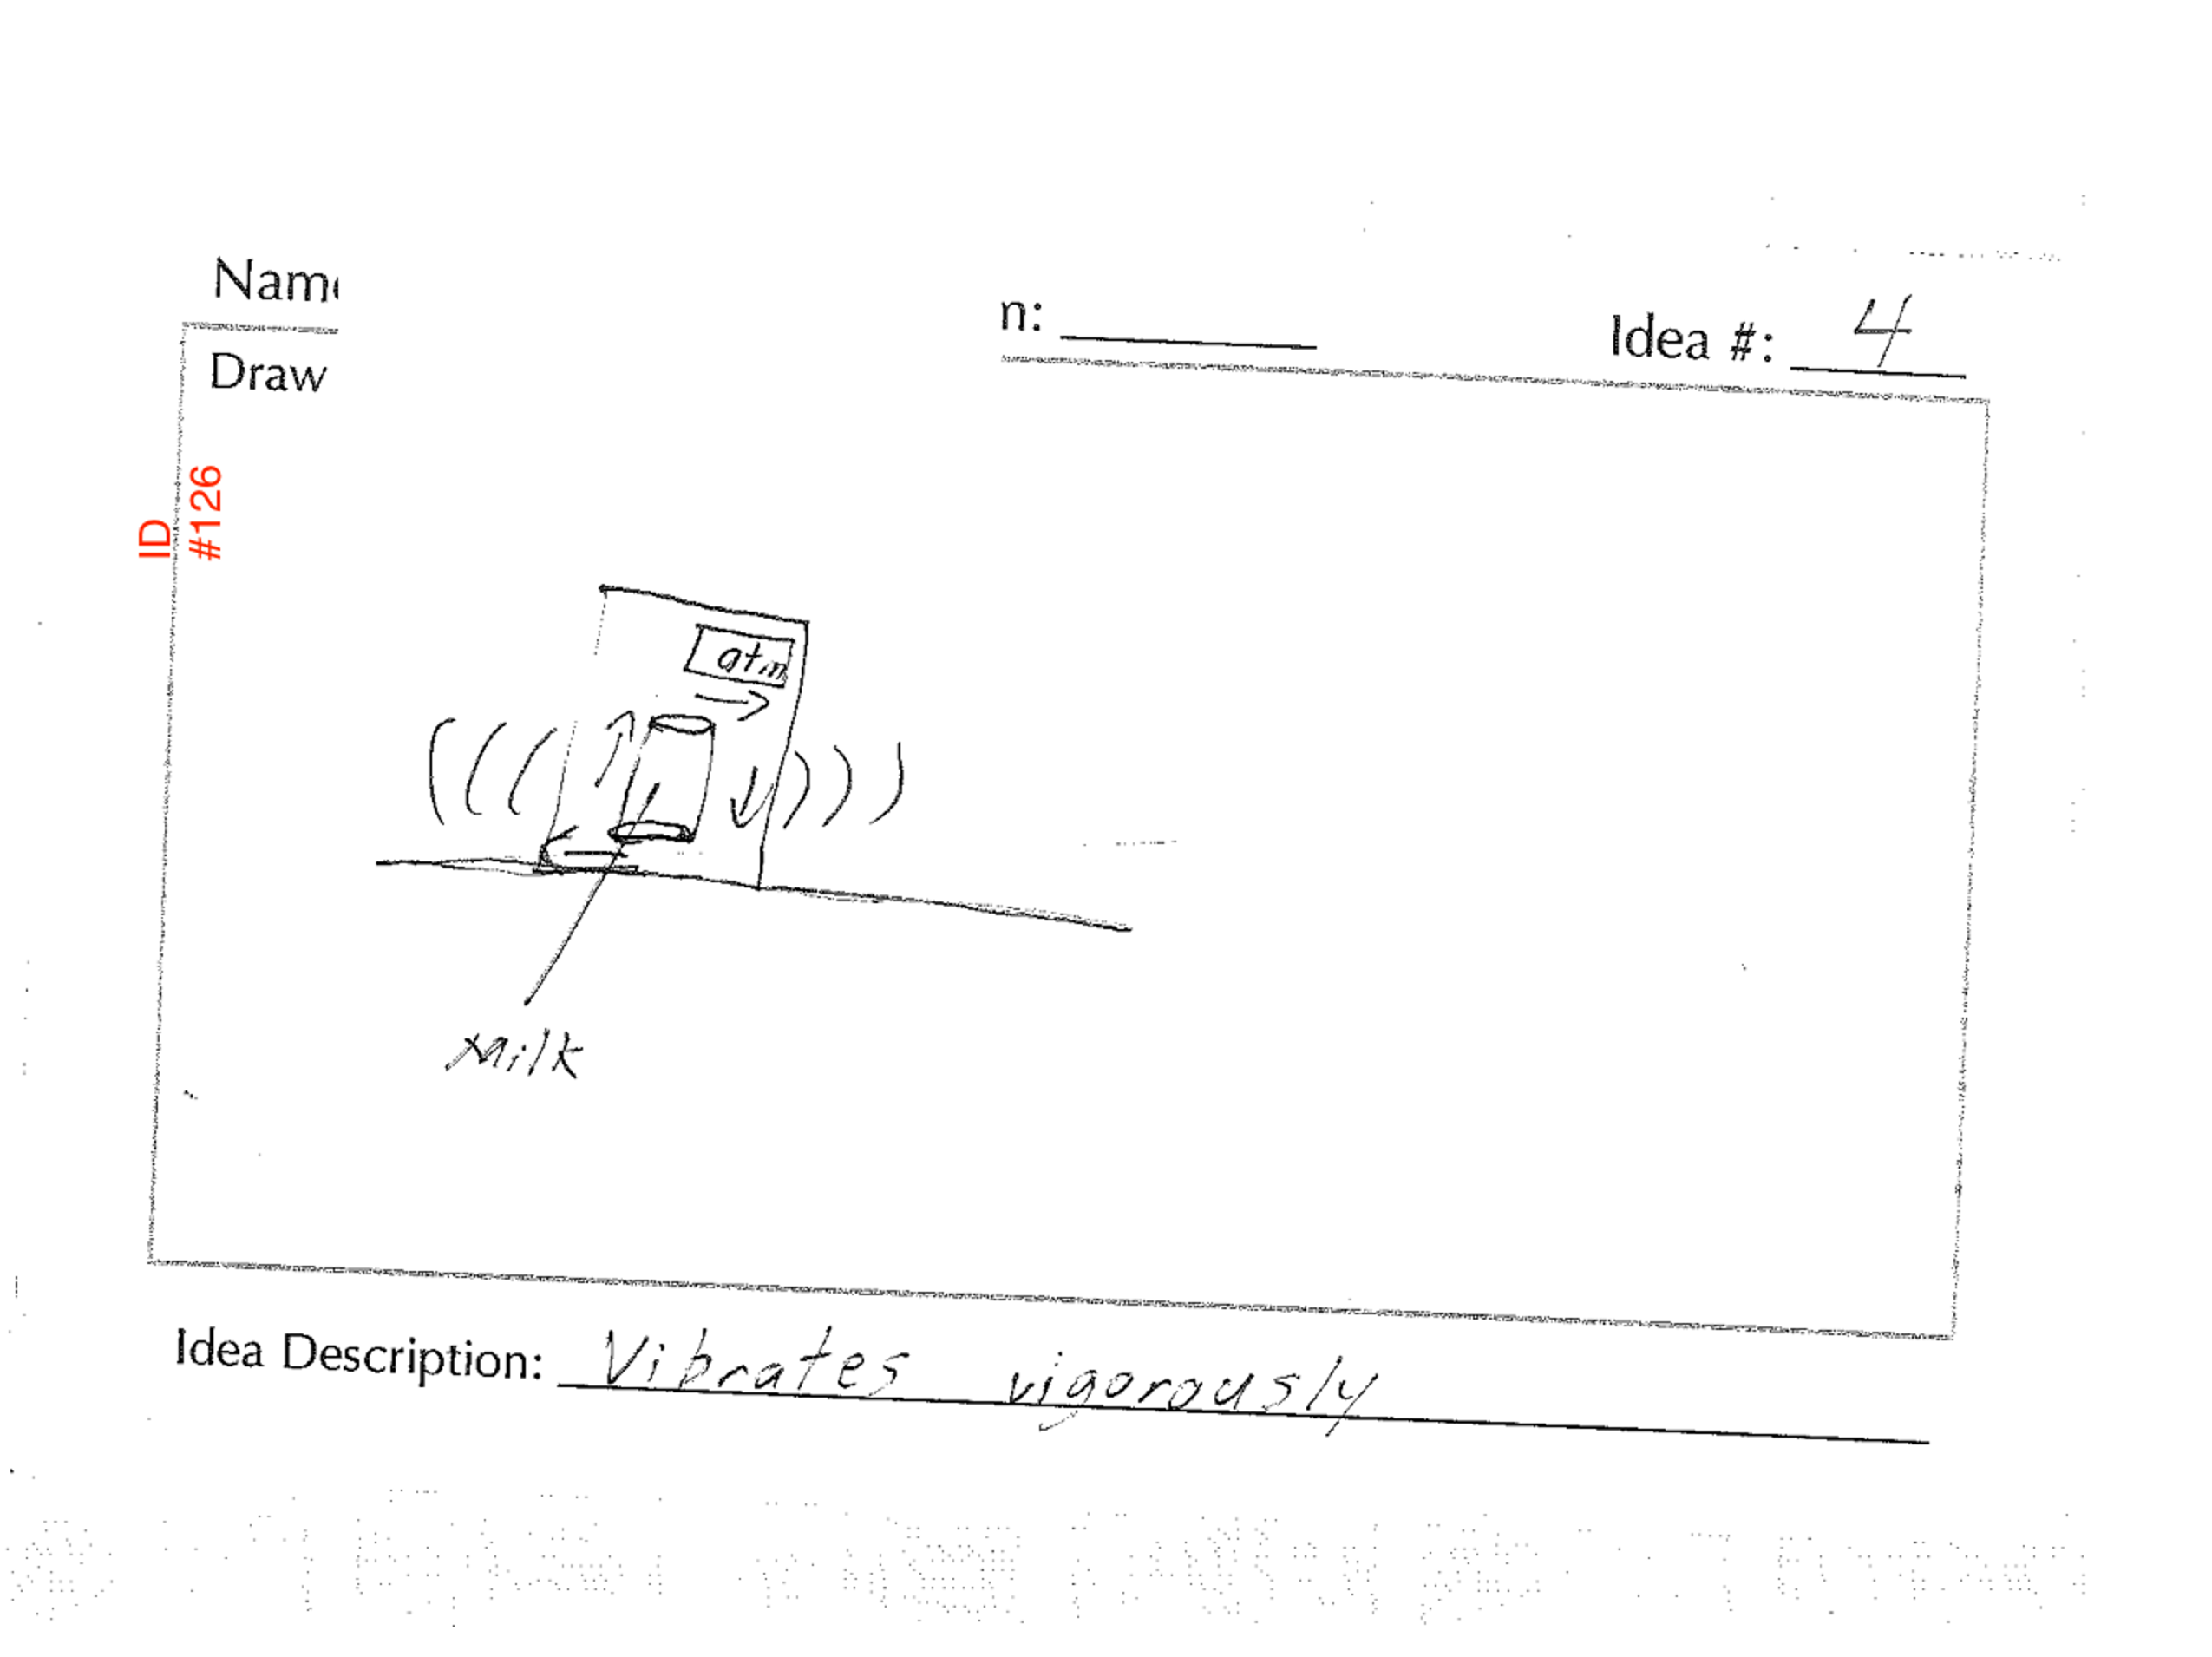 Nam
n:
Idea #: 4
Draw
ID
#126
atm
Milk
Idea Description: Vibrates vigorously